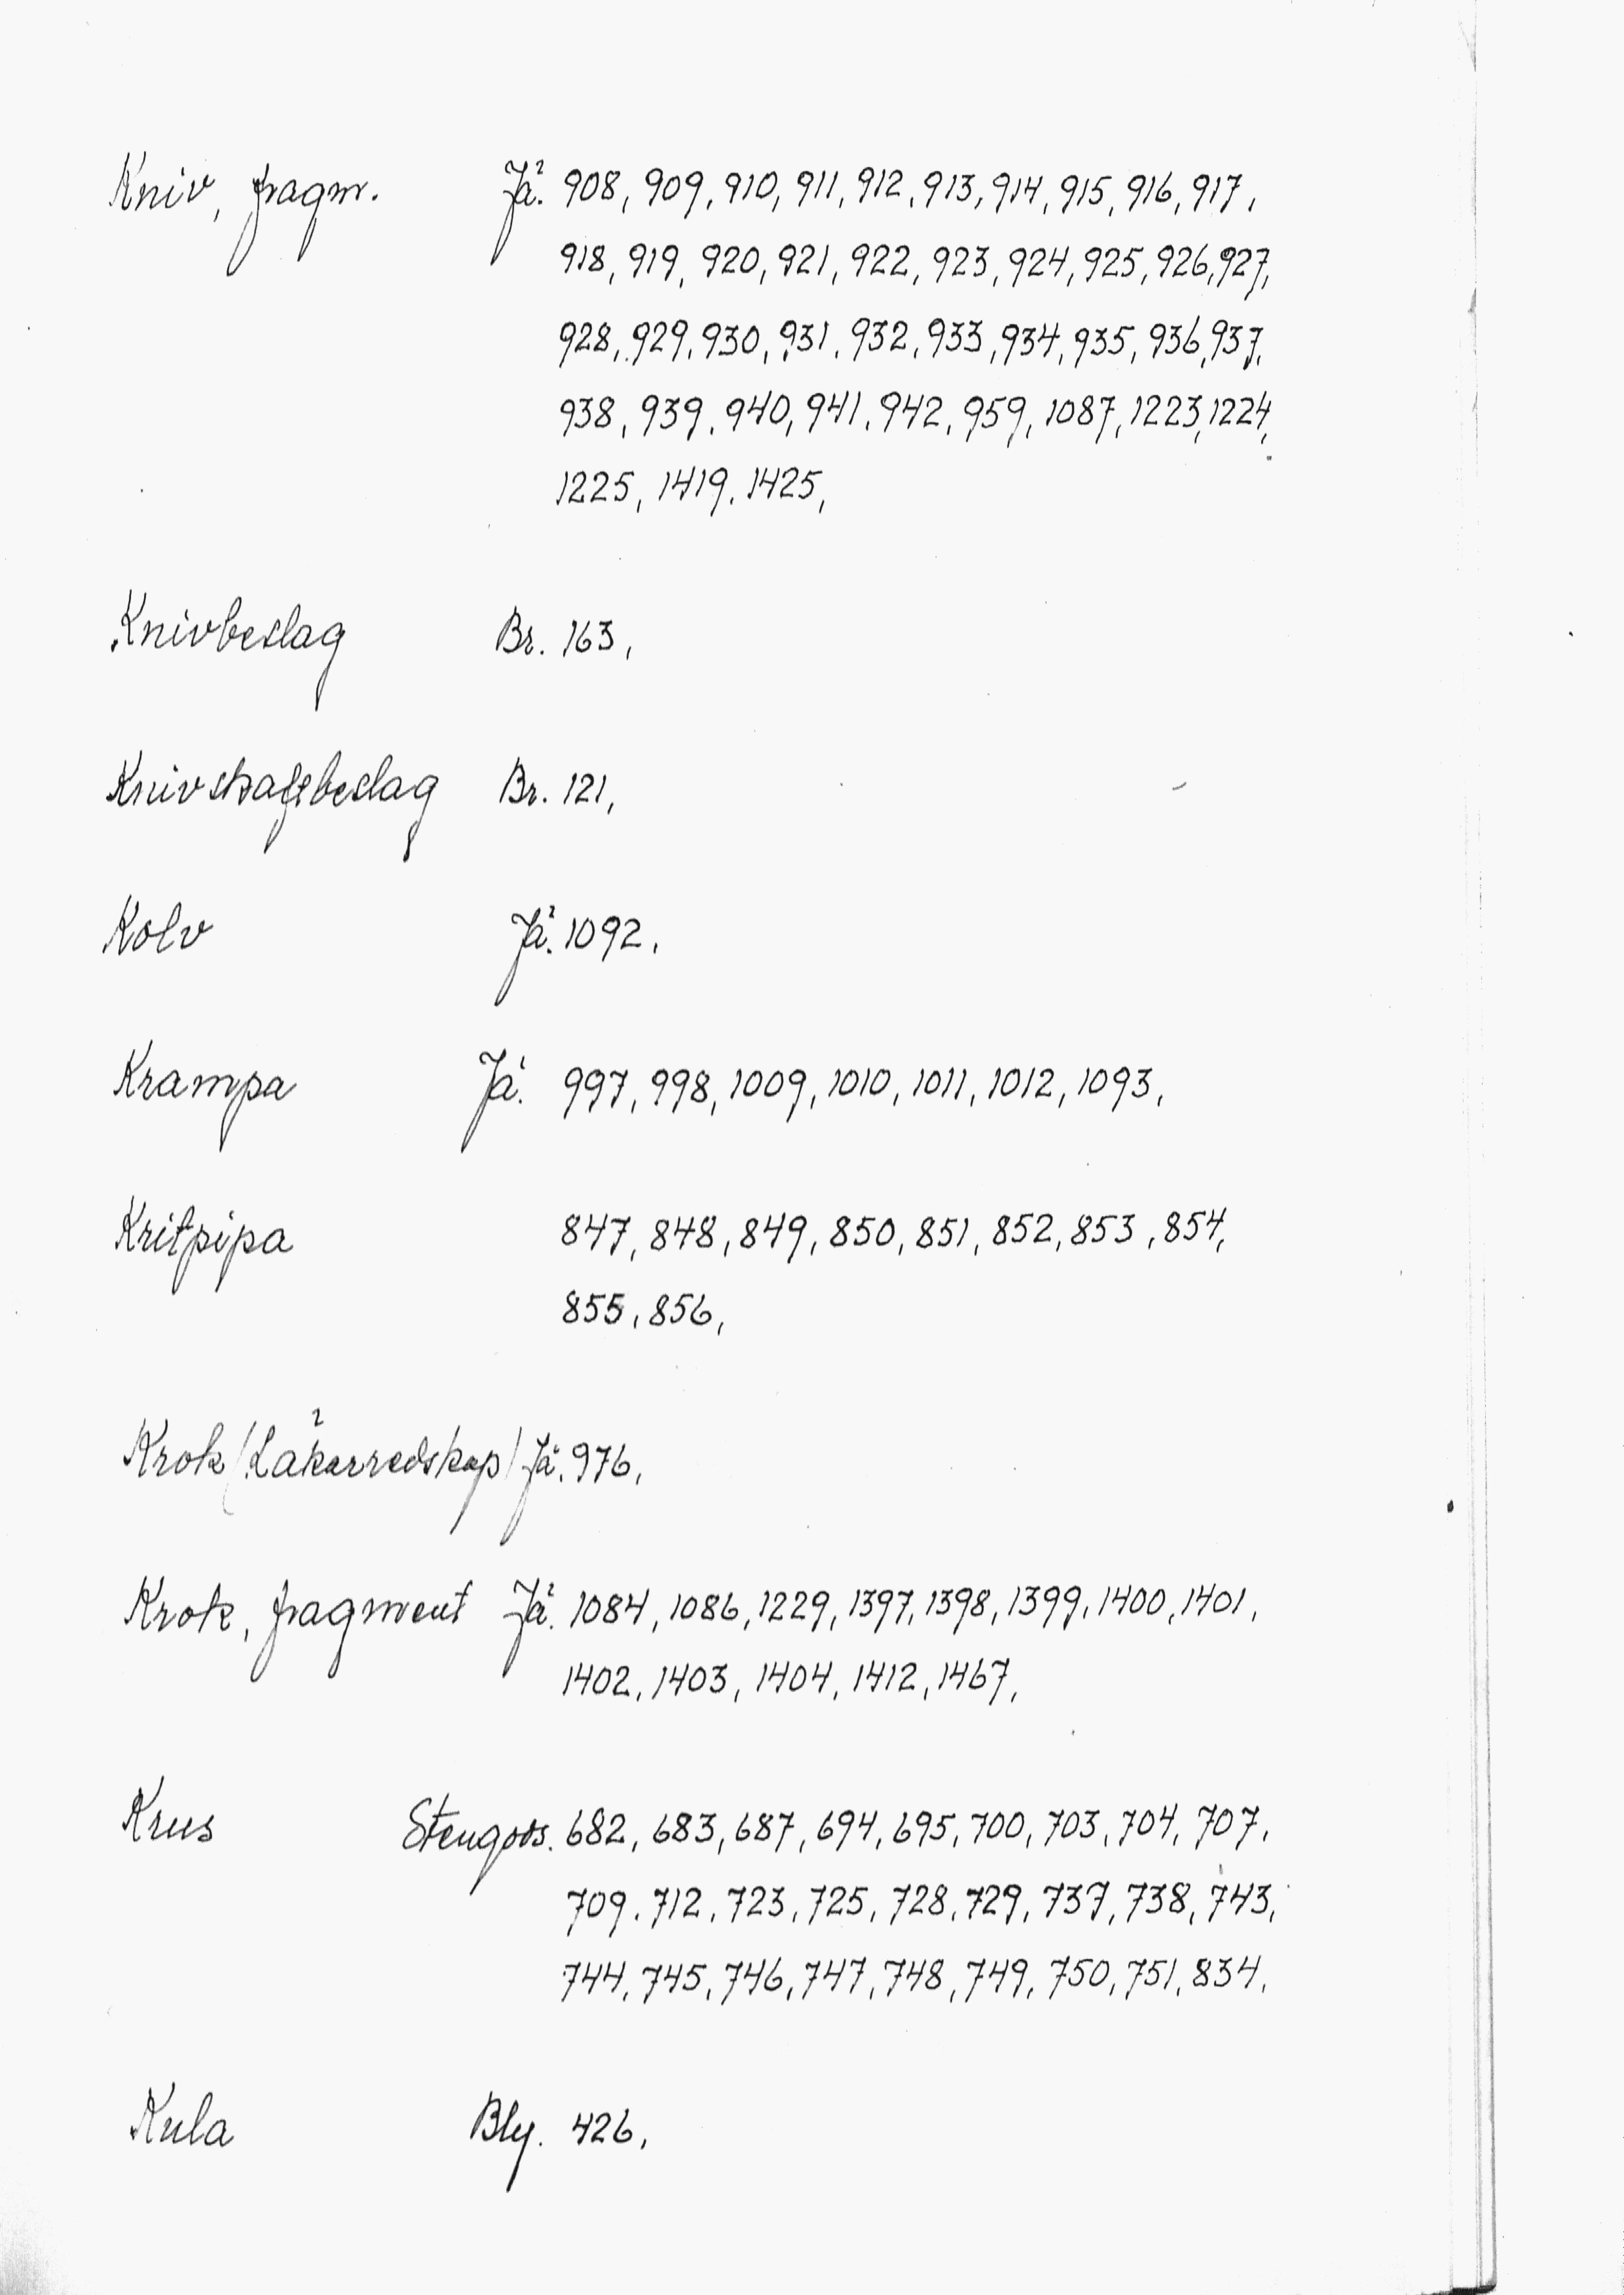 Kniv, fragm. Jä. 908, 909, 910, 911, 912, 913, 914, 915, 916, 917,
918, 919, 920, 921, 922, 923, 924, 925, 926, 927,
928, 929, 930, 931, 932, 933, 934, 935, 936, 937,
938, 939, 940, 941, 942, 959, 1087, 1223, 1224,
1225, 1419, 1425,
Knivbeslag Br. 163,
Knivskaftbeslag Br. 121,
Kolv Jä. 1092,
Krampa Jä. 997, 998, 1009, 1010, 1011, 1012, 1093,
Kritpipa 847, 848, 849, 850, 851, 852, 853, 854,
855, 856,
Krok (Läkarredskap) Jä. 976,
Krok, fragment Jä. 1084, 1086, 1229, 1397, 1398, 1399, 1400, 1401,
1402, 1403, 1404, 1412, 1467,
Krus Stengods. 682, 683, 687, 694, 695, 700, 703, 704, 707,
709, 712, 723, 725, 728, 729, 737, 738, 743,
744, 745, 746, 747, 748, 749, 750, 751, 834,
Kula Bly. 426,